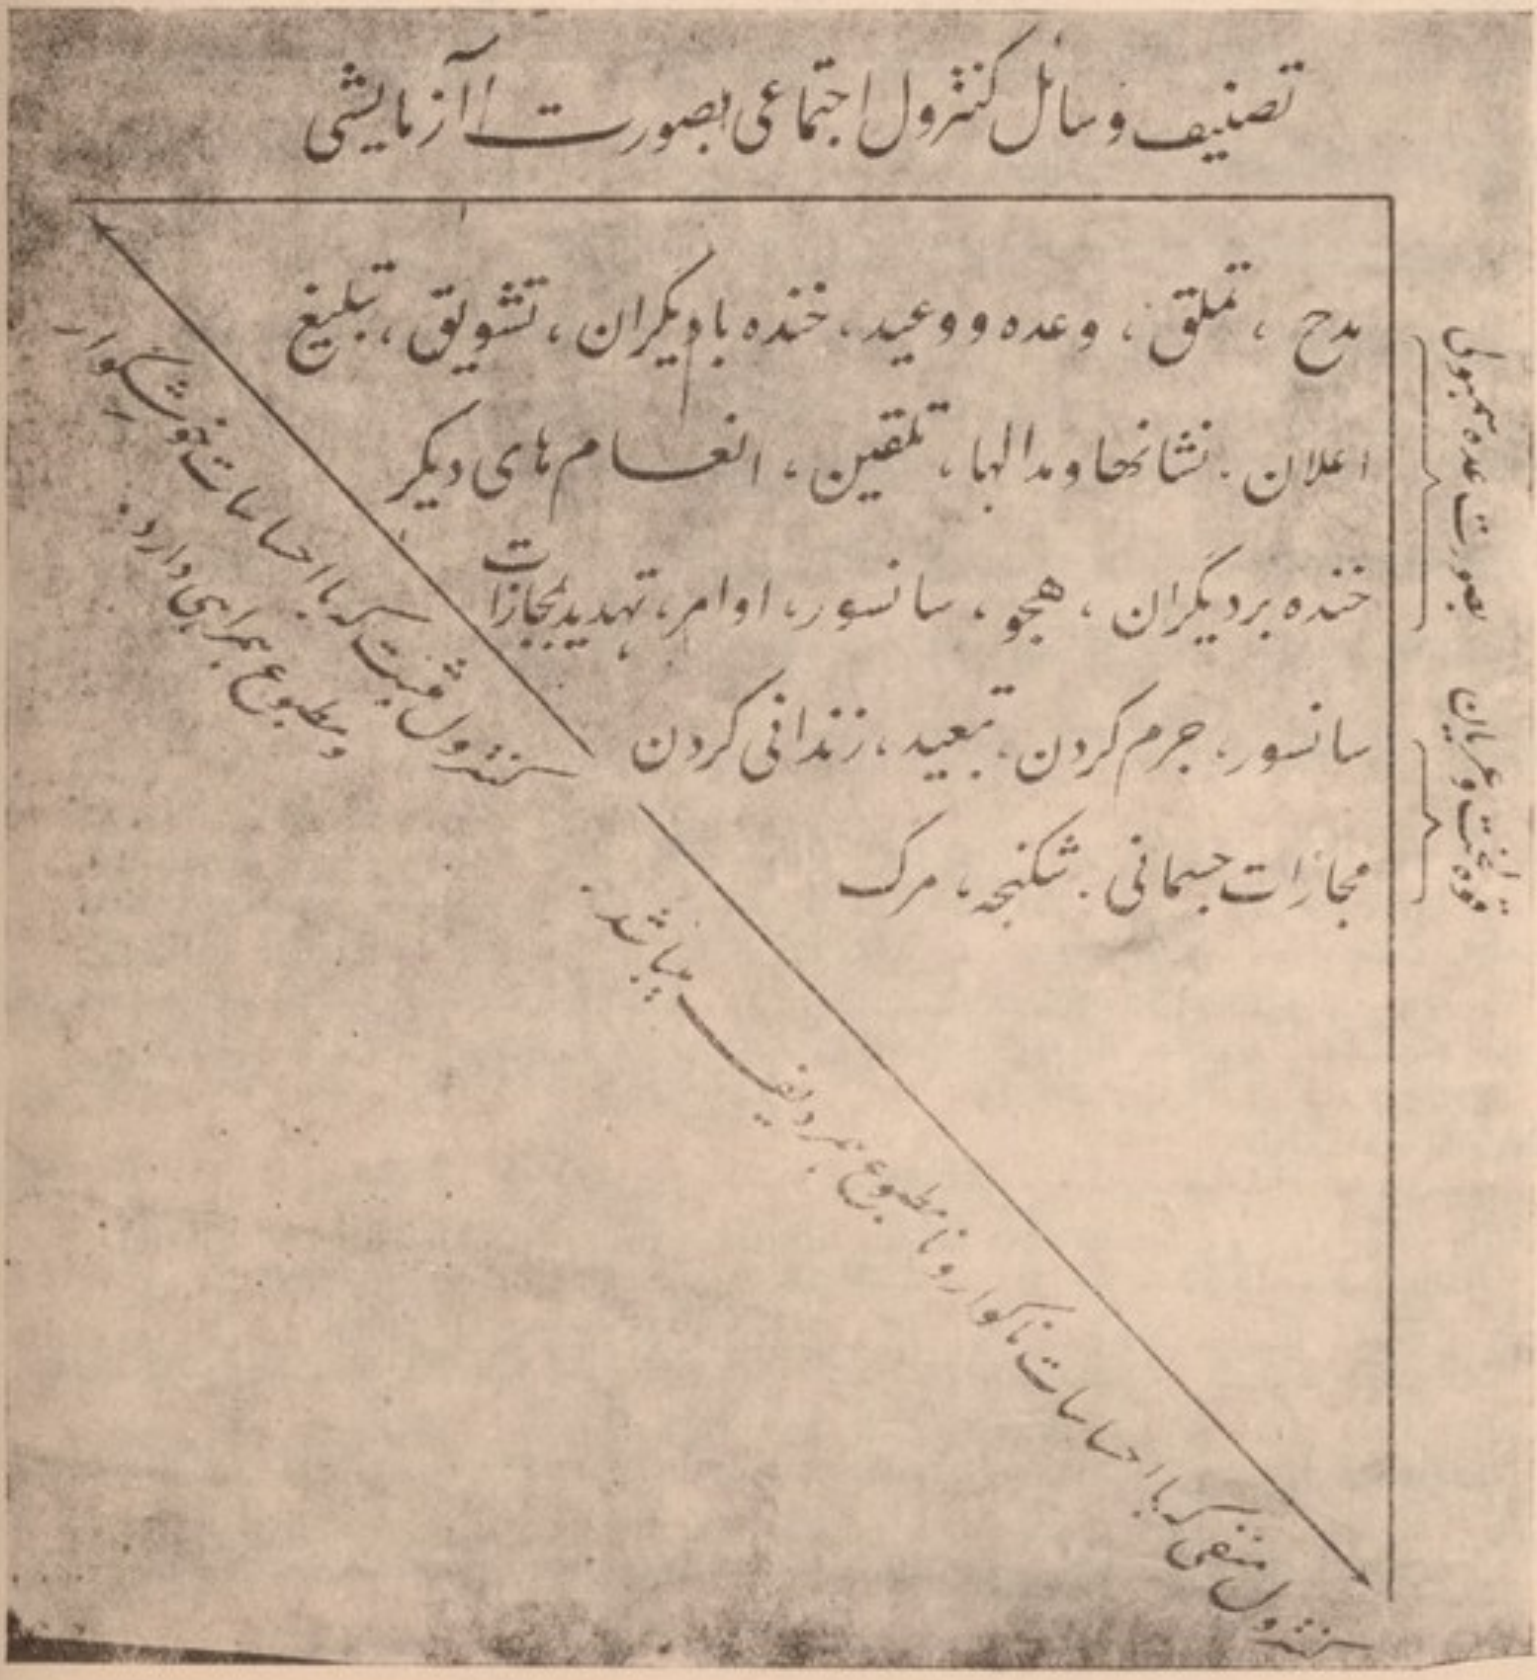 تصنیف وسائل کنترول اجتماعی بصورت آزمایشی
مدح ، تملق ، وعده و وعید ، خنده با دیگران ، تشویق ، تبلیغ
اعلان . نشانها و مدالها ، تلقین ، انعام های دیگر
خنده بر دیگران ، هجو ، سانسور ، اوامر ، تهدید مجازات
سانسور ، جرم کردن ، تبعید ، زندانی کردن
مجازات جسمانی . شکنجه ، مرگ
بصورت عده سمبولی
قوه لخت و عریان
کنترول مثبت که با احساسات خوشگوار
و مطبوع همراهی دارد .
کنترول منفی که با احساسات ناگوار و نا مطبوع همردیف میباشد .